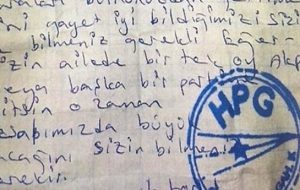 ni gayet iyi bildiğimizi sizi
bilmeniz gerekli Eğer-
izin ailede bir tek oy Akp
eya başka bir parti
o zaman
esabımızda büyü
acağını sizin bilmeniz
erekir.
HPG